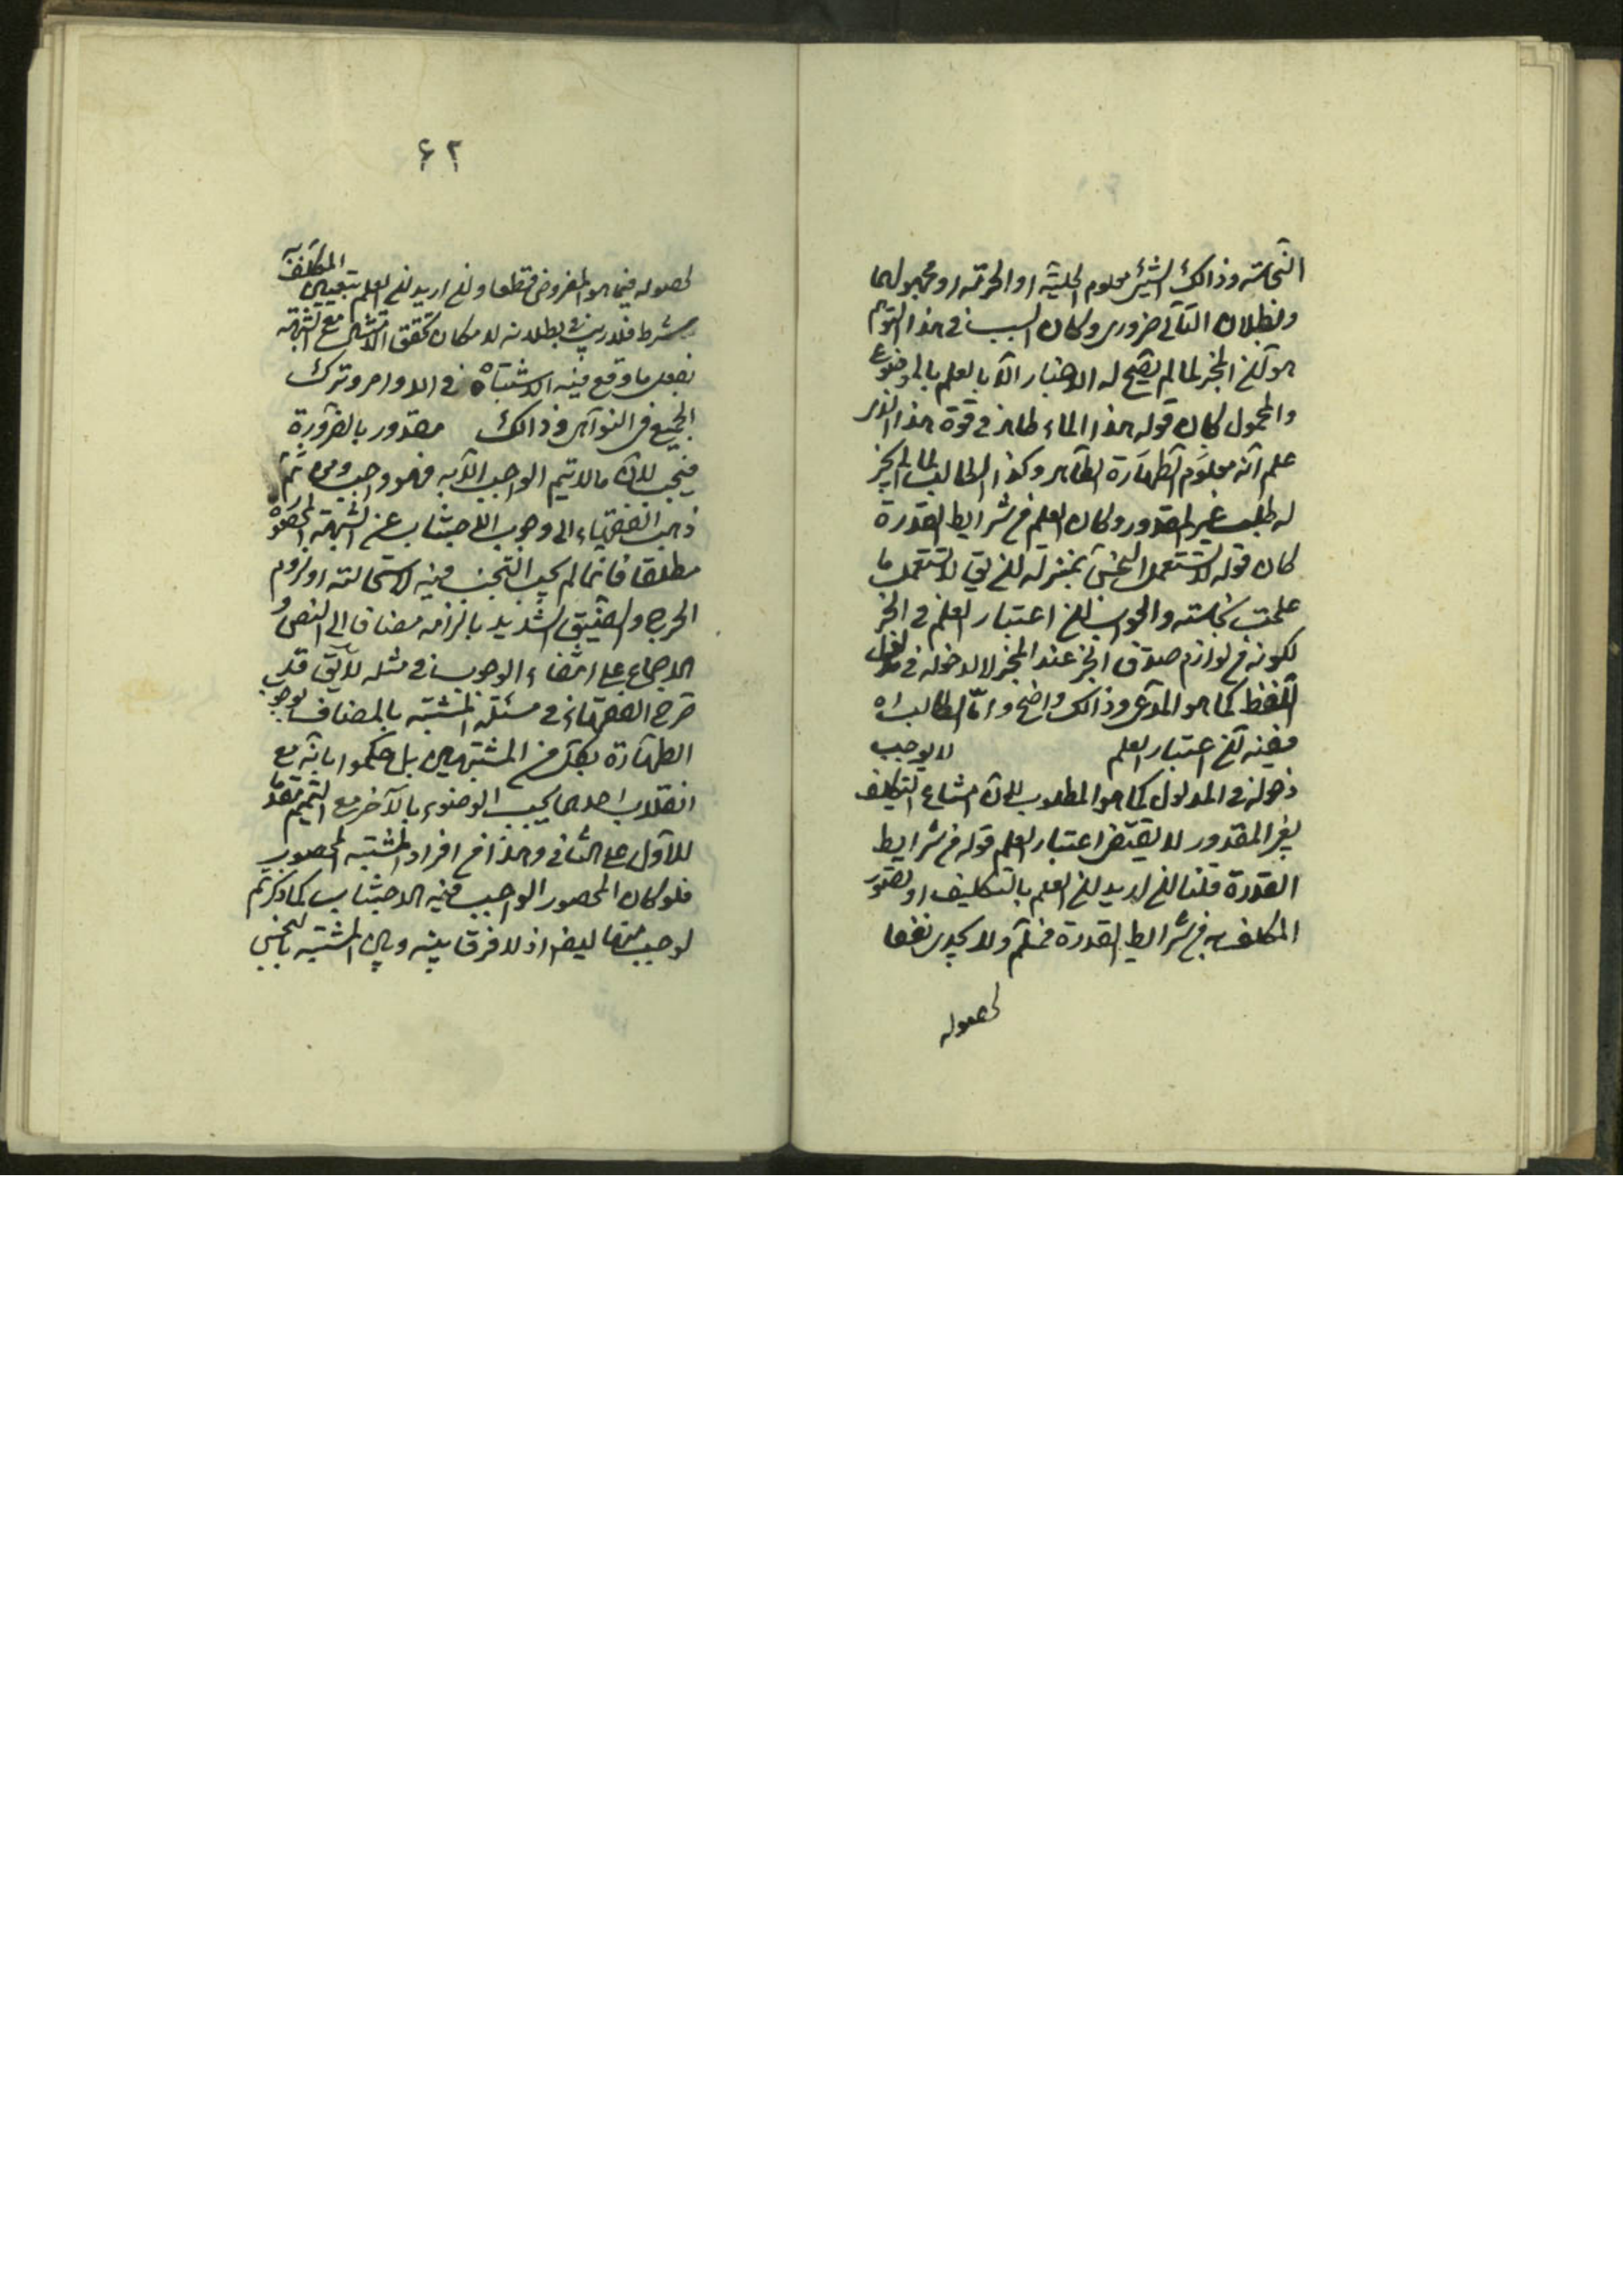 النجاسة وذالك الشيئ معلوم الحلية او الحرمة او مجهولهما
وبطلان التالى ضرورى وكان السبب فى هذا التوهم
هو ان المخبر لما لم يصح له الاخبار الا بالعلم بالموضوع
والمحمول كان قوله هذا الماء طاهر فى قوة هذا الذى
علم انه معلوم الطهارة طاهر وكذا الطالب لما لم يجز
له طلب غير المقدور وكان العلم من شرايط القدرة
كان قوله لا تستعمل النجس بمنزلة ان يق لا تستعمل ما
علمت نجاسته والجواب ان اعتبار العلم فى الخبر
لكونه من لوازم صدق الخبر عند المخبر لا لدخوله فى مدلول
اللفظ كما هو المدعى وذالك واضح واما الطالب
ففيه ان اعتبار العلم لا يوجب
دخوله فى المدلول كما هو المطلوب لان امتناع التكليف
بغير المقدور لا يقتضى اعتبار العلم قوله من شرايط
القدرة قلنا ان اريد ان العلم بالتكليف او تصور
المكلف به من شرايط القدرة فمسلم ولا يجدى نفعا
لحصوله
۶۲
لحصوله فيما هو المفروض قطعا وان اريد ان العلم بتعيين المكلف به
شرط فلا ريب فى بطلانه لامكان تحقق الامتثال مع الشبهة
بفعل ما وقع فيه الاشتباه فى الاوامر وترك
الجميع فى النواهى وذالك مقدور بالضرورة
فيجب لان ما لا يتم الواجب الا به فهو واجب ومن ثم
ذهب الفقهاء الى وجوب الاجتناب عن الشبهة المحصورة
مطلقا فانما لم يجب التجنب فيه لاستحالته او لزوم
الحرج والضيق الشديد بالزامه مضافا الى النص و
الاجماع على انتفاء الوجوب فى مثله لا يق قد
صرح الفقهاء فى مسئلة المشتبه بالمضاف بوجوب
الطهارة بكل من المشتبهين بل حكموا بانه مع
انقلاب احدهما يجب الوضوء بالآخر مع التيمم مقدما
للاول على الثانى وهذا من افراد المشتبه المحصور
فلو كان المحصور الواجب فيه الاجتناب كما ذكرتم
لوجب هنا ايضا اذ لا فرق بينه وبين المشتبه بالنجس